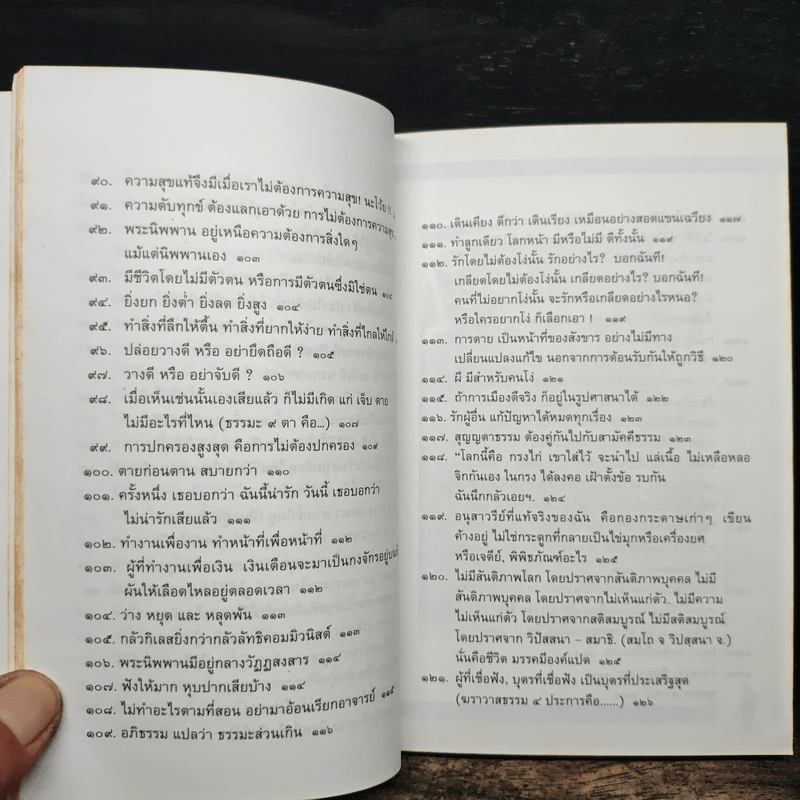 ๙๐. ความสุขแท้จึงมีเมื่อเราไม่ต้องการความสุข! นะโว้ย !!
๙๑. ความดับทุกข์ ต้องแลกเอาด้วย การไม่ต้องการความสุข
๙๒. พระนิพพาน อยู่เหนือความต้องการสิ่งใดๆ
แม้แต่นิพพานเอง ๑๐๓
๙๓. มีชีวิตโดยไม่มีตัวตน หรือการมีตัวตนซึ่งมิใช่ตน ๑๐๔
๙๔. ยิ่งยก ยิ่งต่ำ ยิ่งลด ยิ่งสูง ๑๐๔
๙๕. ทำสิ่งที่ลึกให้ตื้น ทำสิ่งที่ยากให้ง่าย ทำสิ่งที่ไกลให้ใกล้
๙๖. ปล่อยวางดี หรือ อย่ายึดถือดี ? ๑๐๕
๙๗. วางดี หรือ อย่าจับดี ? ๑๐๖
๙๘. เมื่อเห็นเช่นนั้นเองเสียแล้ว ก็ไม่มีเกิด แก่ เจ็บ ตาย
ไม่มีอะไรที่ไหน (ธรรมะ ๙ ตา คือ...) ๑๐๗
๙๙. การปกครองสูงสุด คือการไม่ต้องปกครอง ๑๐๙
๑๐๐. ตายก่อนตาน สบายกว่า ๑๑๐
๑๐๑. ครั้งหนึ่ง เธอบอกว่า ฉันนี้น่ารัก วันนี้ เธอบอกว่า
ไม่น่ารักเสียแล้ว ๑๑๑
๑๐๒. ทำงานเพื่องาน ทำหน้าที่เพื่อหน้าที่ ๑๑๒
๑๐๓. ผู้ที่ทำงานเพื่อเงิน เงินเดือนจะมาเป็นกงจักรอยู่บน
ผันให้เลือดไหลอยู่ตลอดเวลา ๑๑๒
๑๐๔. ว่าง หยุด และ หลุดพ้น ๑๑๓
๑๐๕. กลัวกิเลสยิ่งกว่ากลัวลัทธิคอมมิวนิสต์ ๑๑๓
๑๐๖. พระนิพพานมีอยู่กลางวัฏฏสงสาร ๑๑๔
๑๐๗. ฟังให้มาก หุบปากเสียบ้าง ๑๑๔
๑๐๘. ไม่ทำอะไรตามที่สอน อย่ามาอ้อนเรียกอาจารย์ ๑๑๕
๑๐๙. อภิธรรม แปลว่า ธรรมะส่วนเกิน ๑๑๖
๑๑๐. เดินเคียง ดีกว่า เดินเรียง เหมือนอย่างสอดแขนเฉวียง ๑๑๗
๑๑๑. ทำลูกเดียว โลกหน้า มีหรือไม่มี ดีทั้งนั้น ๑๑๙
๑๑๒. รักโดยไม่ต้องโง่นั้น รักอย่างไร? บอกฉันที!
เกลียดโดยไม่ต้องโง่นั้น เกลียดอย่างไร? บอกฉันที!
คนที่ไม่อยากโง่นั้น จะรักหรือเกลียดอย่างไรหนอ?
หรือใครอยากโง่ ก็เลือกเอา ! ๑๑๙
๑๑๓. การตาย เป็นหน้าที่ของสังขาร อย่างไม่มีทาง
เปลี่ยนแปลงแก้ไข นอกจากการต้อนรับกันให้ถูกวิธี ๑๒๐
๑๑๔. ผี มีสำหรับคนโง่ ๑๒๑
๑๑๕. ถ้าการเมืองดีจริง ก็อยู่ในรูปศาสนาได้ ๑๒๒
๑๑๖. รักผู้อื่น แก้ปัญหาได้หมดทุกเรื่อง ๑๒๓
๑๑๗. สุญญตาธรรม ต้องคู่กันไปกับสามัคคีธรรม ๑๒๓
๑๑๘. “โลกนี้คือ กรงไก่ เขาใส่ไว้ จะนำไป แล่เนื้อ ไม่เหลือหลอ
จิกกันเอง ในกรง ได้ลงคอ เฝ้าตั้งข้อ รบกัน
ฉันนึกกลัวเอยฯ. ๑๒๔
๑๑๙. อนุสาวรีย์ที่แท้จริงของฉัน คือกองกระดาษเก่าๆ เขียน
ค้างอยู่ ไม่ใช่กระดูกที่กลายเป็นไข่มุกหรือเครื่องยศ
หรือเจดีย์, พิพิธภัณฑ์อะไร ๑๒๕
๑๒๐. ไม่มีสันติภาพโลก โดยปราศจากสันติภาพบุคคล ไม่มี
สันติภาพบุคคล โดยปราศจากไม่เห็นแก่ตัว. ไม่มีความ
ไม่เห็นแก่ตัว โดยปราศจากสติสมบูรณ์ ไม่มีสติสมบูรณ์
โดยปราศจาก วิปัสสนา – สมาธิ. (สมโถ จ วิปสฺสนา จ.)
นั่นคือชีวิต มรรคมีองค์แปด ๑๒๕
๑๒๑. ผู้ที่เชื่อฟัง, บุตรที่เชื่อฟัง เป็นบุตรที่ประเสริฐสุด
(ฆราวาสธรรม ๔ ประการคือ......) ๑๒๖